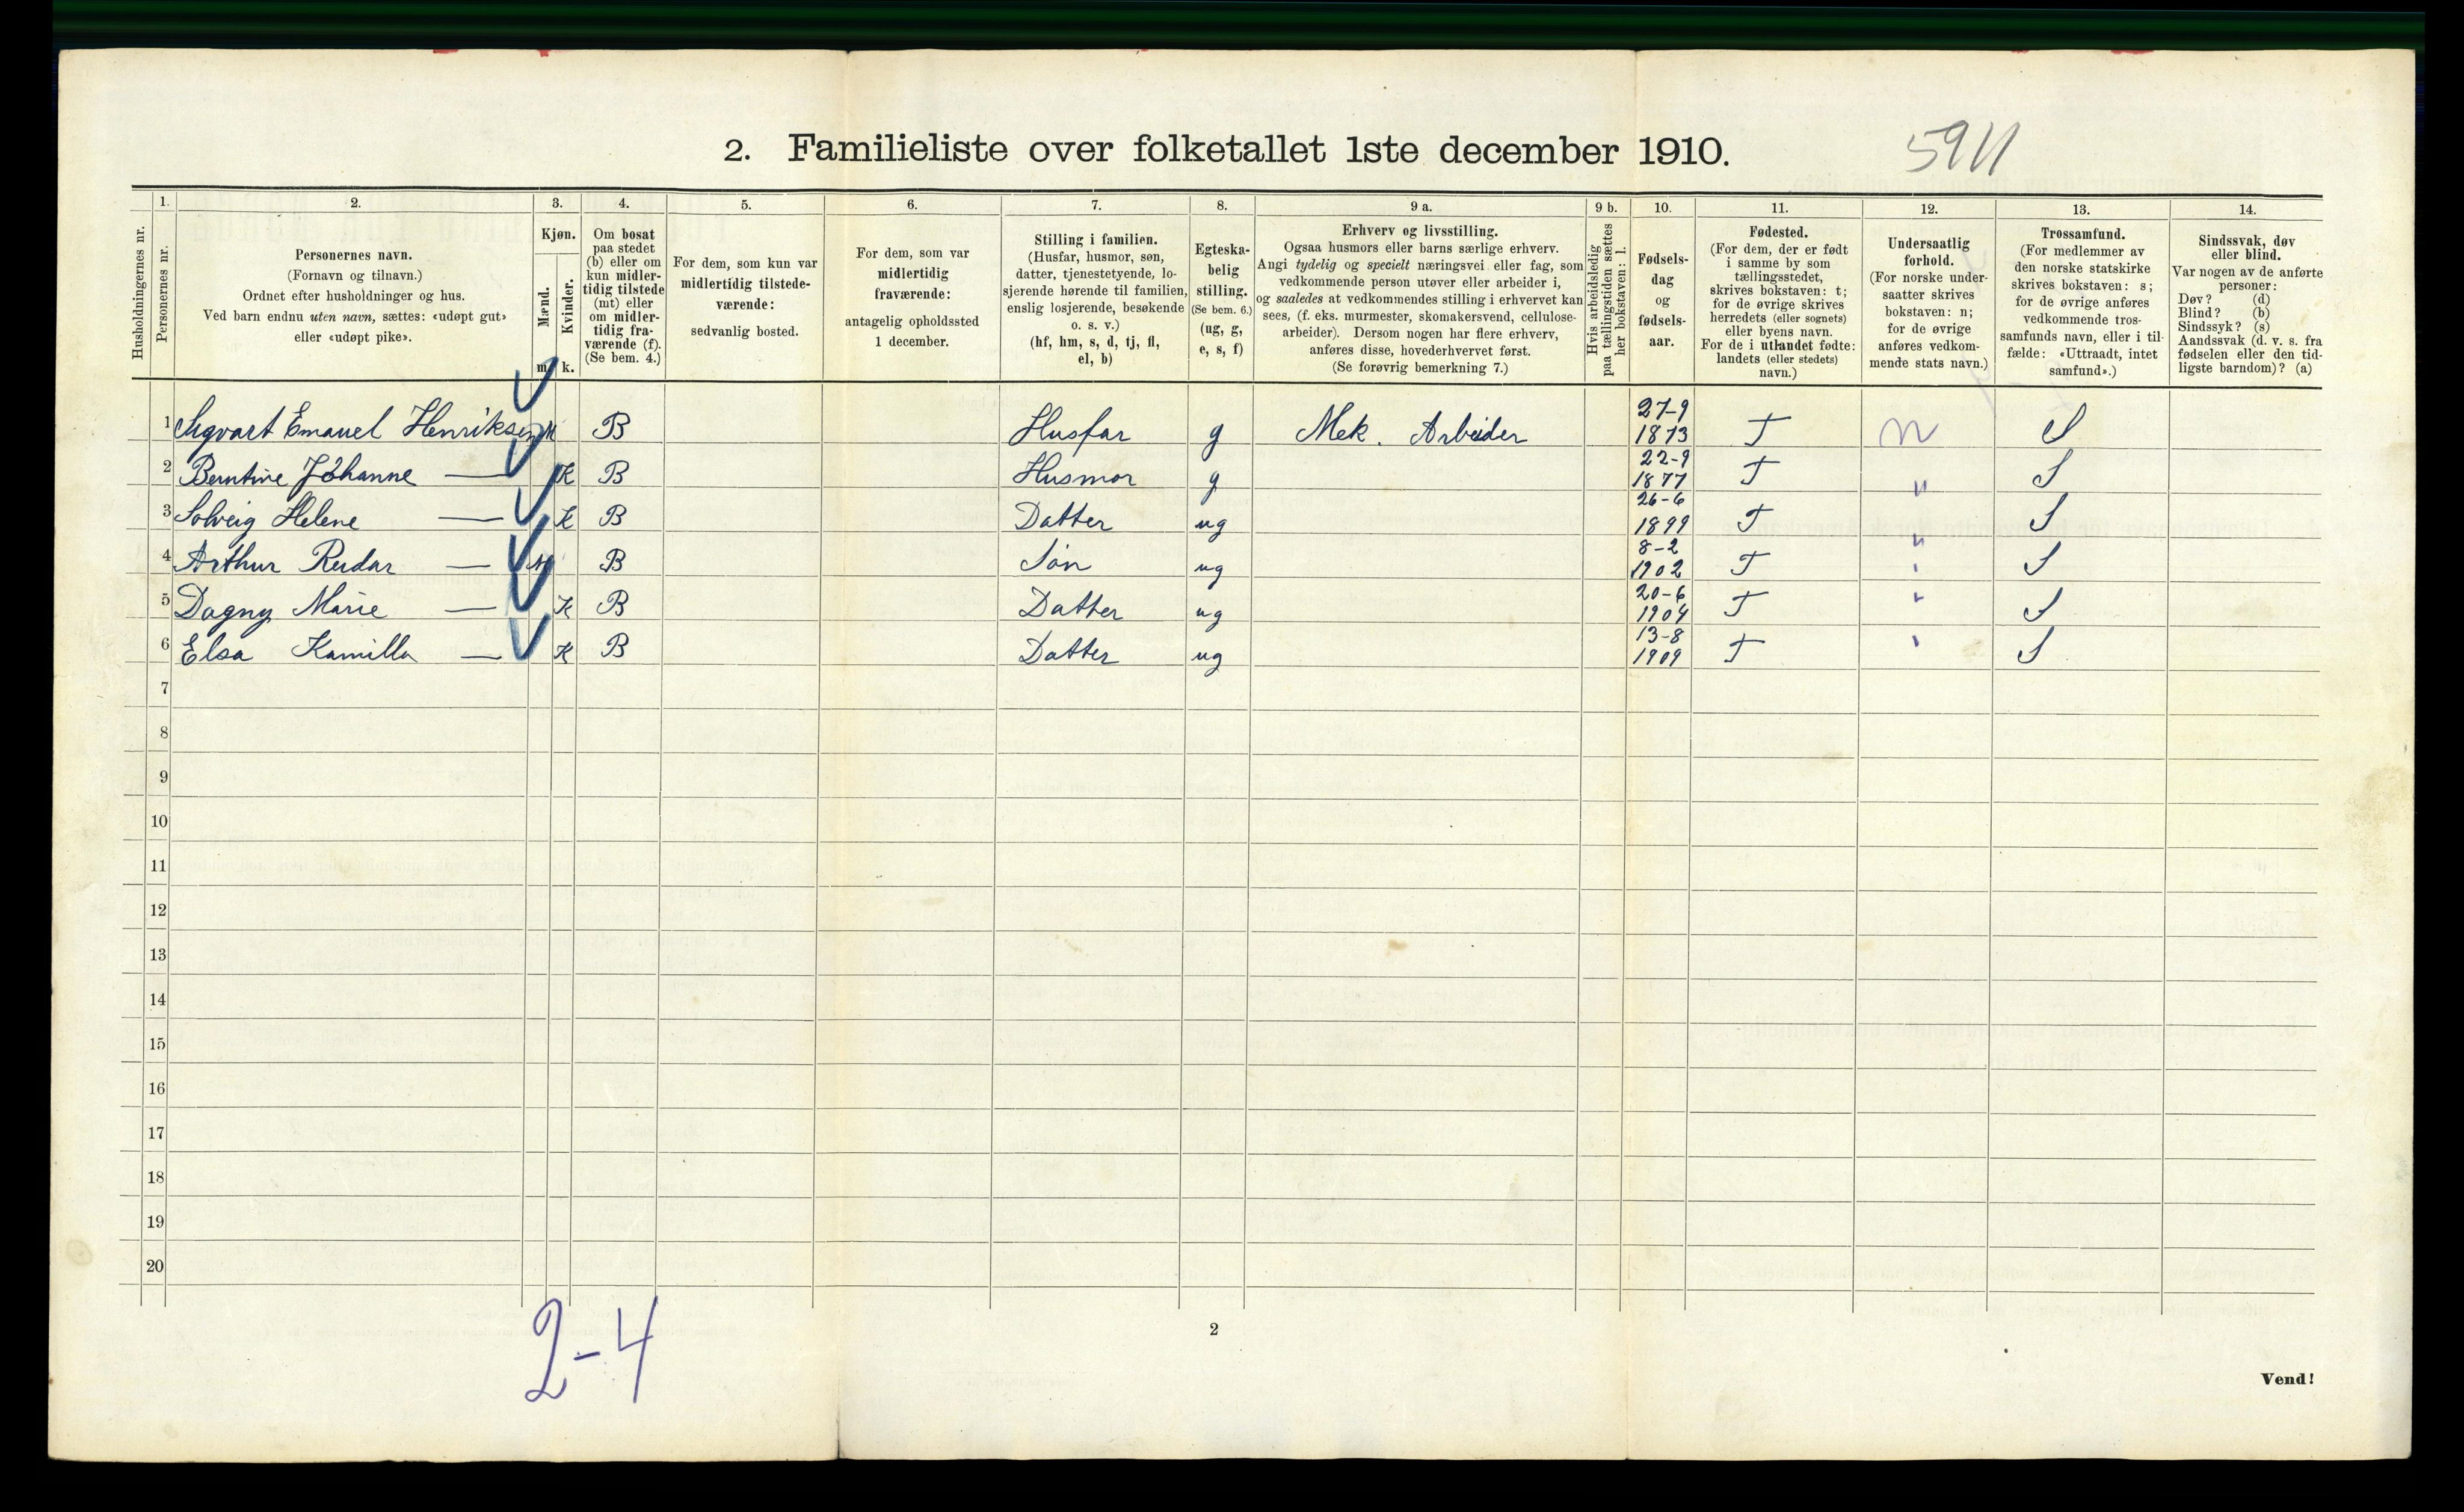 2. Familieliste over folketallet 1ste december 1910.
5911
Husholdningernes nr.
1. Personernes nr.
2. Personernes navn.
(Fornavn og tilnavn.)
Ordnet efter husholdninger og hus.
Ved barn endnu uten navn, sættes: «udøpt gut»
eller «udøpt pike».
3. Kjøn.
Mænd. m.
Kvinder. k.
4. Om bosat
paa stedet
(b) eller om
kun midler-
tidig tilstede
(mt) eller
om midler-
tidig fra-
værende (f).
(Se bem. 4.)
5. For dem, som kun var
midlertidig tilstede-
værende:
sedvanlig bosted.
6. For dem, som var
midlertidig
fraværende:
antagelig opholdssted
1 december.
7. Stilling i familien.
(Husfar, husmor, søn,
datter, tjenestetyende, lo-
sjerende hørende til familien,
enslig losjerende, besøkende
o. s. v.)
(hf, hm, s, d, tj, fl,
el, b)
8. Egteska-
belig
stilling.
(Se bem. 6.)
(ug, g,
e, s, f)
9 a. Erhverv og livsstilling.
Ogsaa husmors eller barns særlige erhverv.
Angi tydelig og specielt næringsvei eller fag, som
vedkommende person utøver eller arbeider i,
og saaledes at vedkommendes stilling i erhvervet kan
sees, (f. eks. murmester, skomakersvend, cellulose-
arbeider). Dersom nogen har flere erhverv,
anføres disse, hovederhvervet først.
(Se forøvrig bemerkning 7.)
9 b. Hvis arbeidsledig
paa tællingstiden sættes
her bokstaven: l.
10. Fødsels-
dag
og
fødsels-
aar.
11. Fødested.
(For dem, der er født
i samme by som
tællingsstedet,
skrives bokstaven: t;
for de øvrige skrives
herredets (eller sognets)
eller byens navn.
For de i utlandet fødte:
landets (eller stedets)
navn.)
12. Undersaatlig
forhold.
(For norske under-
saatter skrives
bokstaven: n;
for de øvrige
anføres vedkom-
mende stats navn.)
13. Trossamfund.
(For medlemmer av
den norske statskirke
skrives bokstaven: s;
for de øvrige anføres
vedkommende tros-
samfunds navn, eller i til-
fælde: «Uttraadt, intet
samfund».)
14. Sindssvak, døv
eller blind.
Var nogen av de anførte
personer:
Døv? (d)
Blind? (b)
Sindssyk? (s)
Aandssvak (d. v. s. fra
fødselen eller den tid-
ligste barndom)? (a)
1 Sigvart Emanuel Henriksen M B Husfar g Mek. Arbeider 27-9 1873 T n S
2 Berntine Johanne — K B Husmor g 22-9 1877 T " S
3 Solveig Helene — K B Datter ug 26-6 1899 T " S
4 Arthur Reidar — M B Søn ug 8-2 1902 T " S
5 Dagny Marie — K B Datter ug 20-6 1904 T " S
6 Elsa Kamilla — K B Datter ug 13-8 1909 T " S
7
8
9
10
11
12
13
14
15
16
17
18
19
20
2-4
2
Vend!